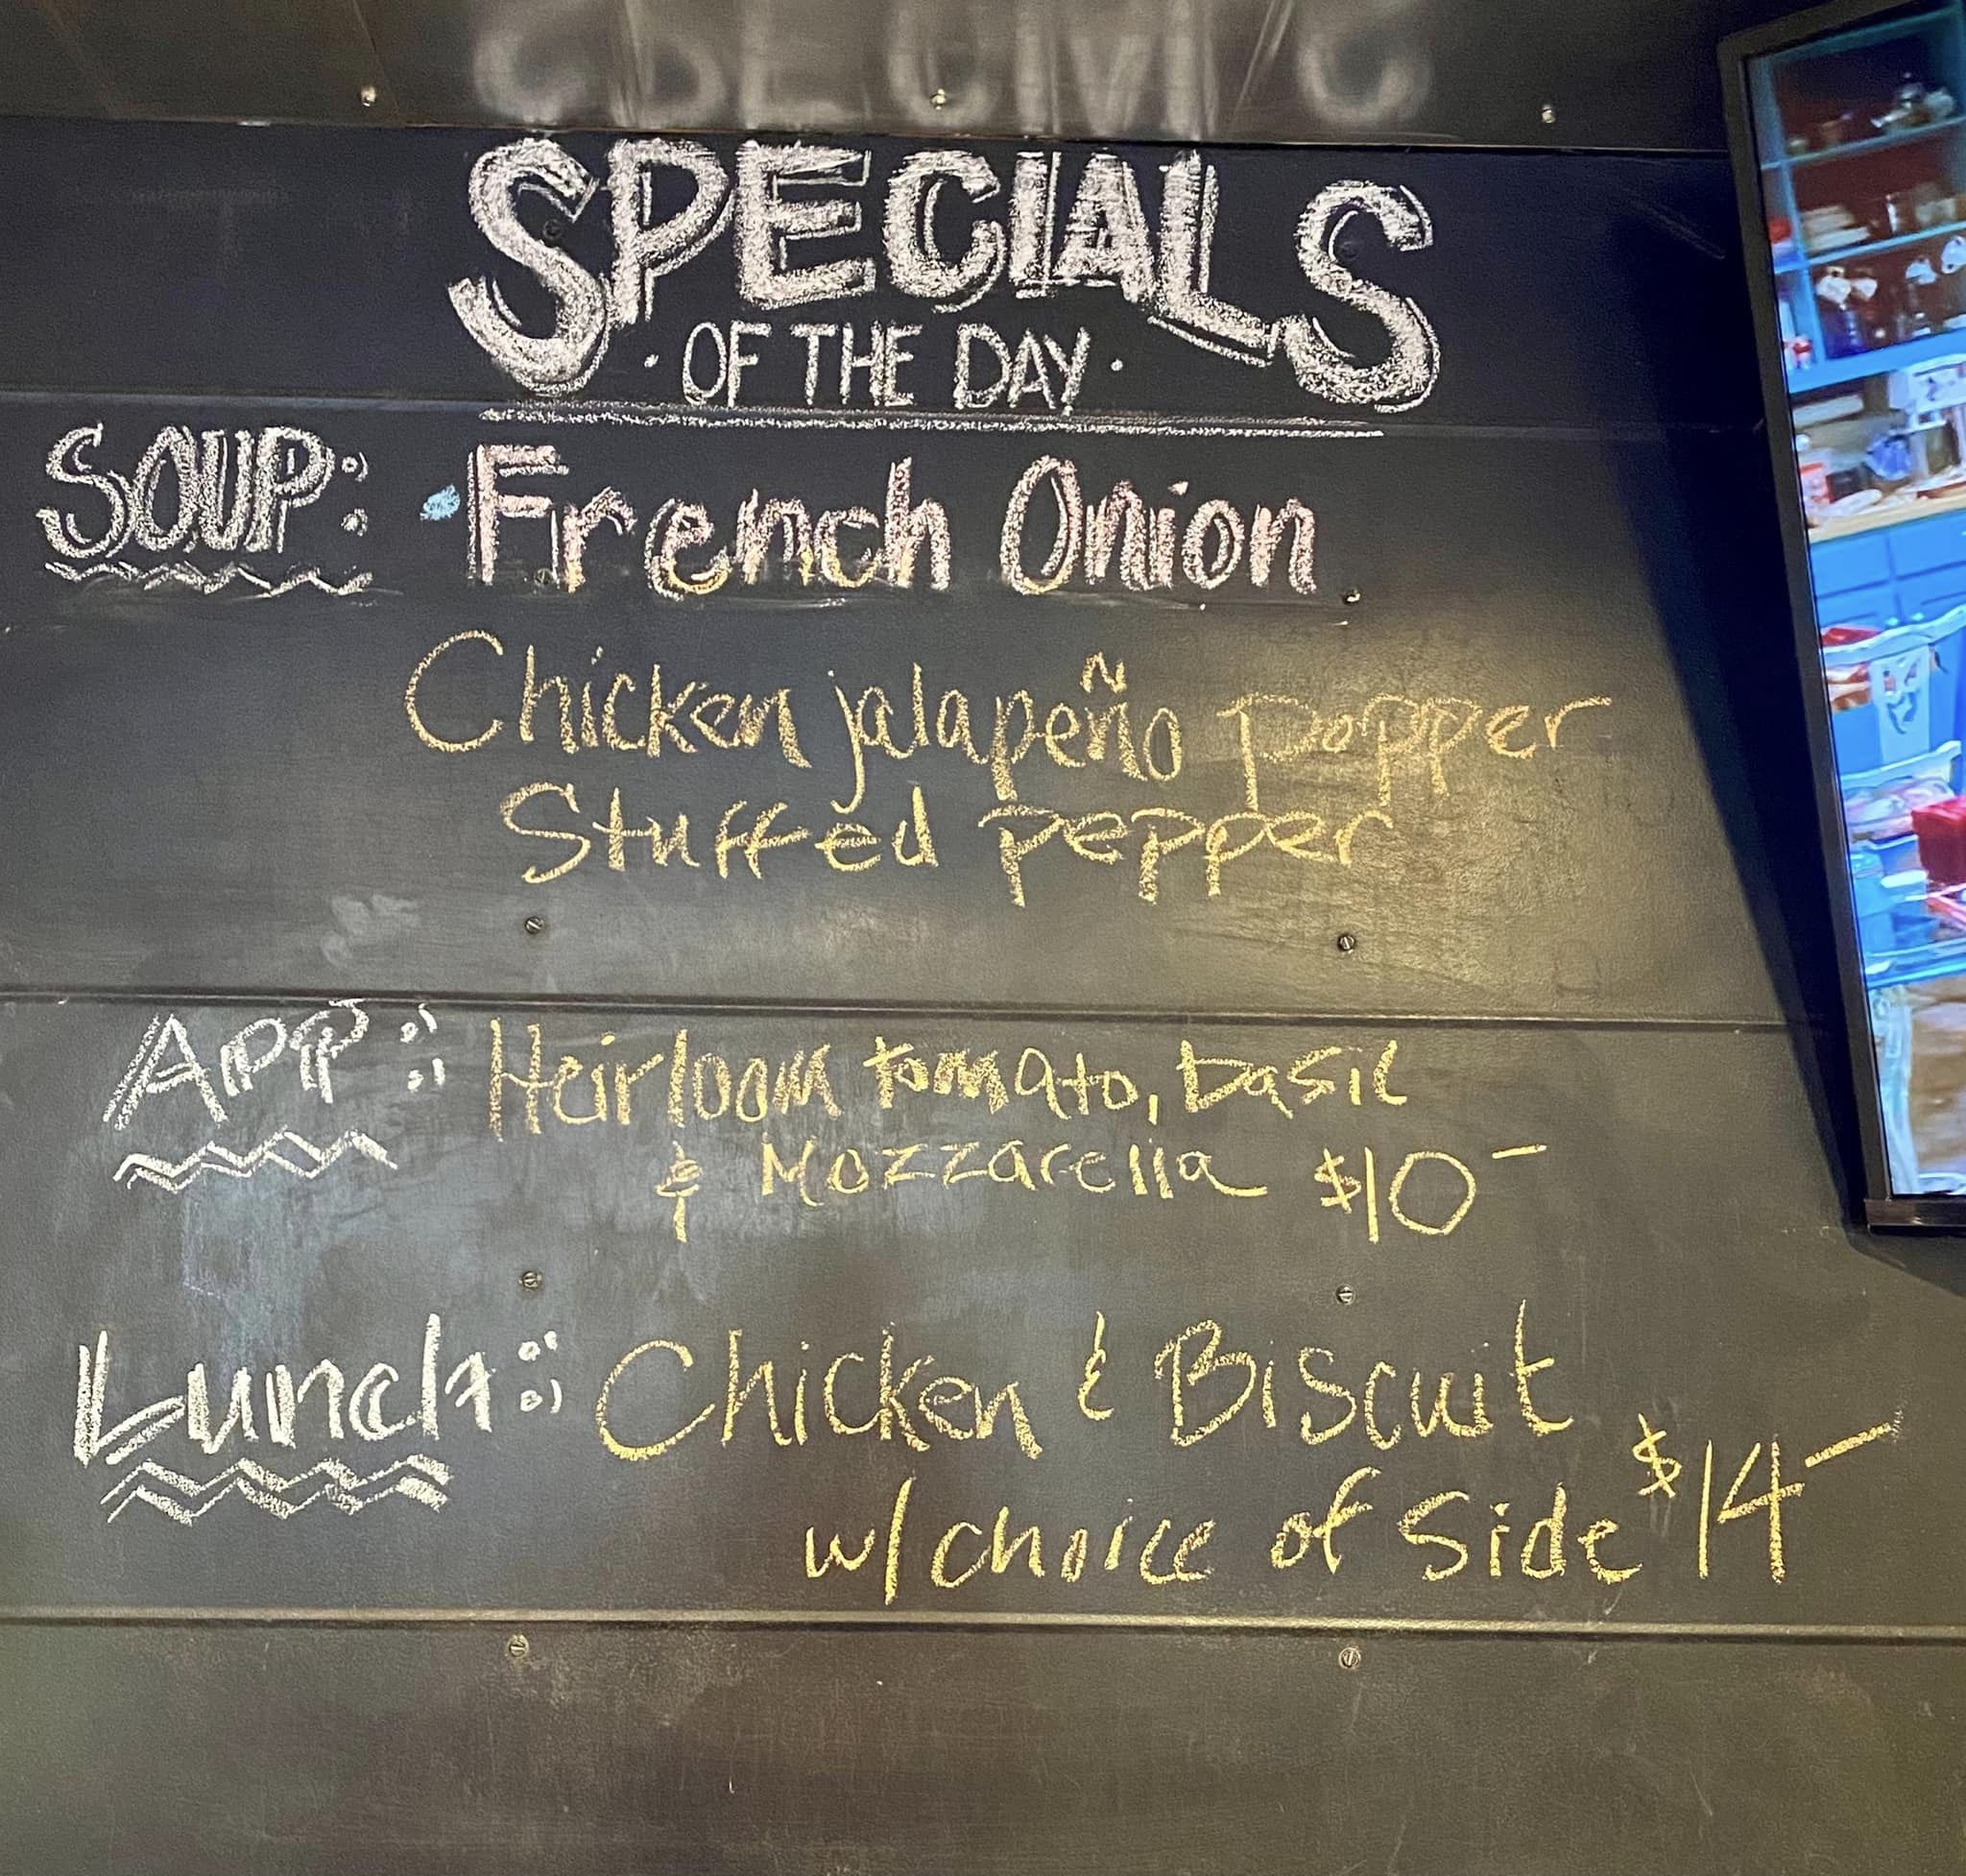 SPECIALS
· OF THE DAY ·
SOUP: · French Onion
Chicken jalapeño popper
Stuffed pepper
APP: Heirloom tomato, basil
& Mozzarella $10-
Lunch: Chicken & Biscuit
w/ choice of side $14-